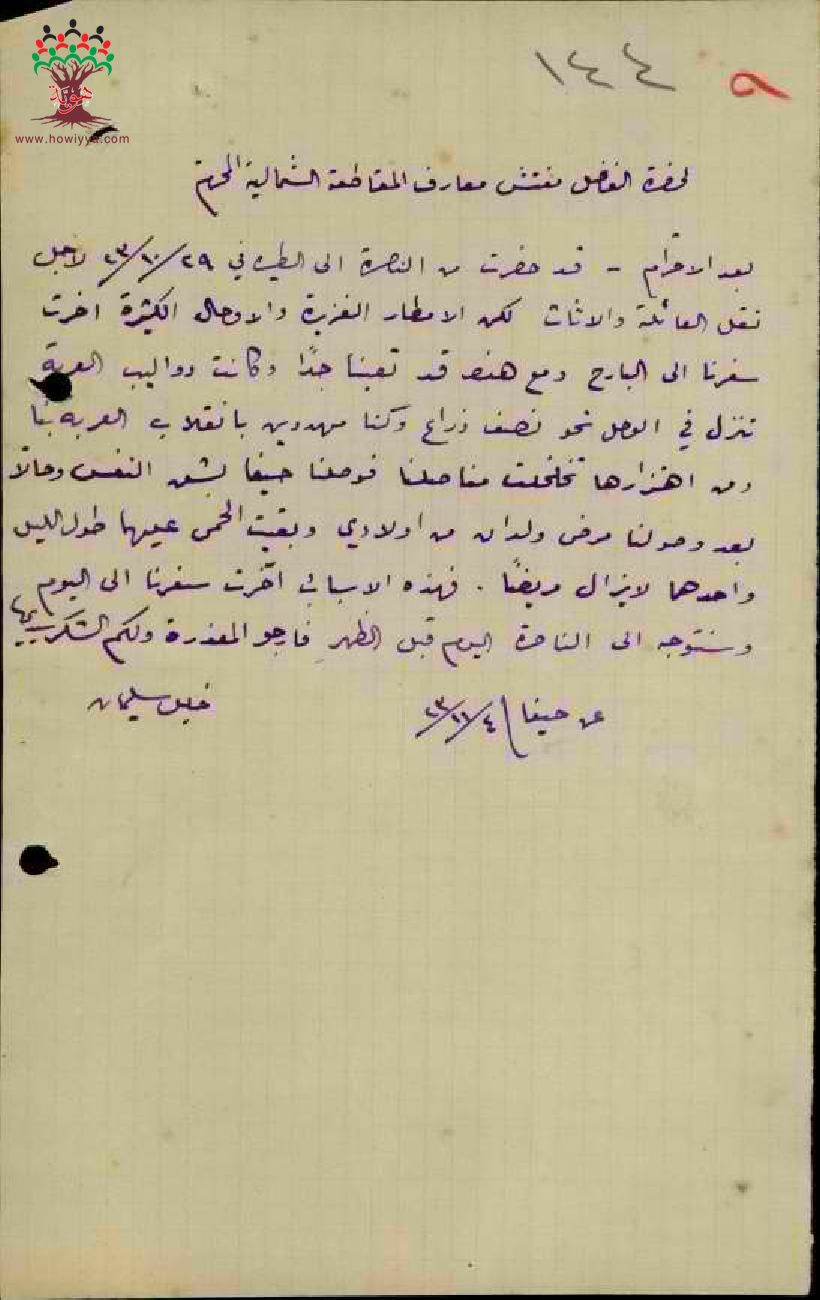 هوية
www.howiyya.com
١٤٤
٩
لحضرة الفاضل مفتش معارف المقاطعة الشمالية المحترم
بعد الاحترام - قد حضرت من الناصرة الى الطيره في ٢٩/١٠/٢٣ لاجل
نقل العائلة والاثاث لكن الامطار الغزيرة والاوحال الكثيرة اخرت
سفرنا الى البارح ومع هذا قد تعبنا جدًا وكانت دواليب العربة
تنزل في الوحل نحو نصف ذراع وكنا مهددين بانقلاب العربه بنا
ومن اهتزازها تخلخلت مفاصلنا فوصلنا حيفا بشق النفس وحالاً
بعد وصولنا مرض ولدان من اولادي وبقيت الحمى عليهما طول الليل
واحدهما لا يزال مريضًا . فهذه الاسباب اخّرت سفرنا الى اليوم
وسنتوجه الى الناصرة اليوم قبل الظهر فارجو المعذرة ولكم الشكر
عن حيفا ٤/١١/٢٣
خليل سليمان